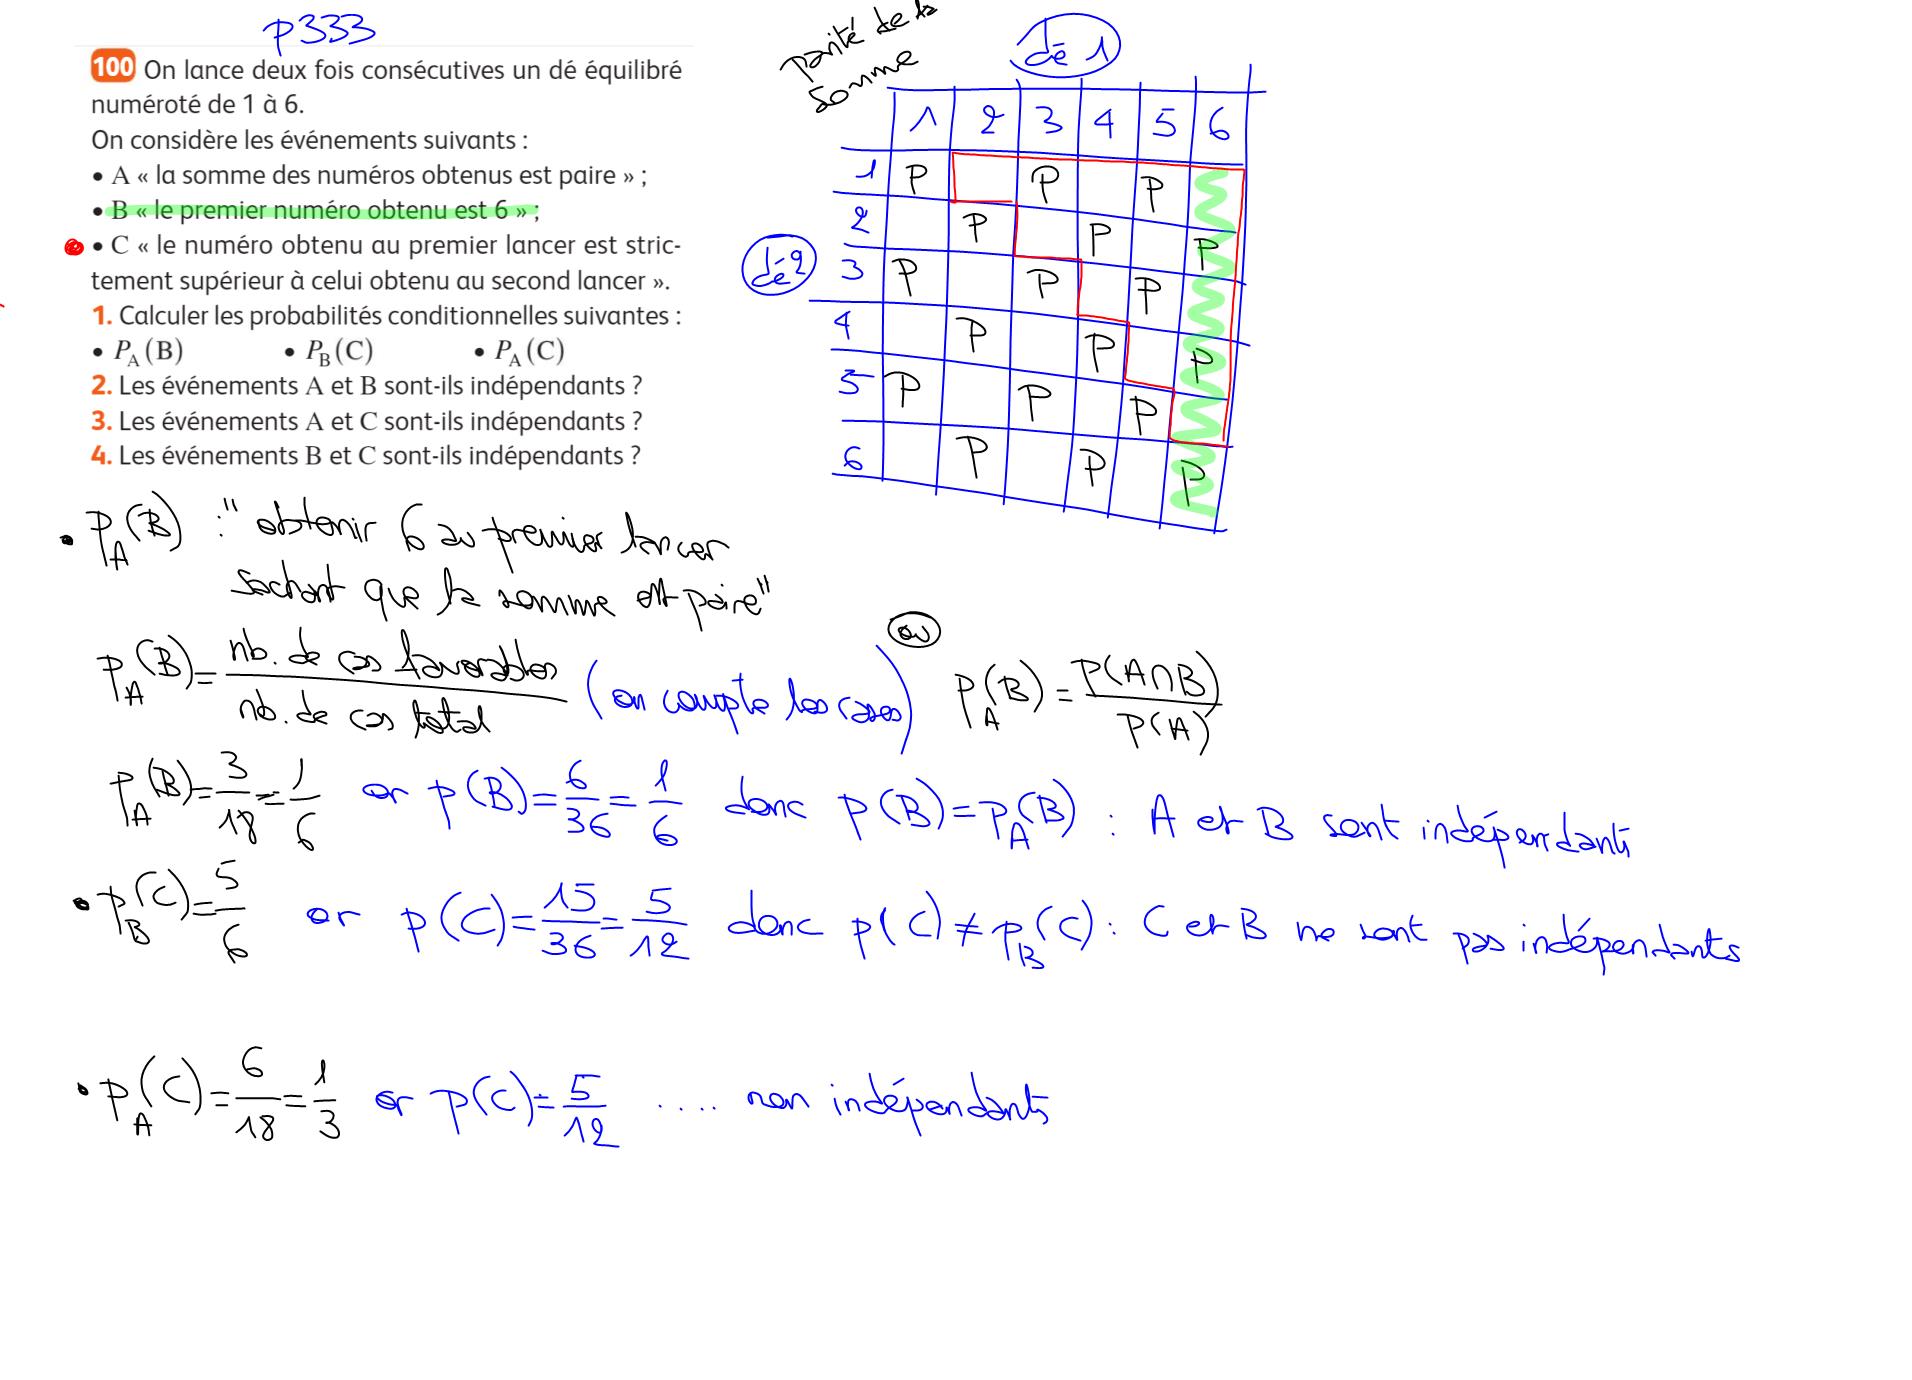 p333
100 On lance deux fois consécutives un dé équilibré
numéroté de 1 à 6.
On considère les événements suivants :
• A « la somme des numéros obtenus est paire » ;
• B « le premier numéro obtenu est 6 » ;
• C « le numéro obtenu au premier lancer est stric-
tement supérieur à celui obtenu au second lancer ».
1. Calculer les probabilités conditionnelles suivantes :
• P_A(B) • P_B(C) • P_A(C)
2. Les événements A et B sont-ils indépendants ?
3. Les événements A et C sont-ils indépendants ?
4. Les événements B et C sont-ils indépendants ?
parité de la
somme
dé 1
1 2 3 4 5 6
dé 2
1 P P P
2 P P P
3 P P P
4 P P P
5 P P P
6 P P P
• P_A(B) : "obtenir 6 au premier lancer
sachant que la somme est paire"
P_A(B) = nb. de cas favorables / nb. de cas total (on compte les cases) ou P_A(B) = P(A∩B) / P(A)
P_A(B) = 3/18 = 1/6 or p(B) = 6/36 = 1/6 donc p(B) = P_A(B) : A et B sont indépendants
• P_B(C) = 5/6 or p(C) = 15/36 = 5/12 donc p(C) ≠ P_B(C) : C et B ne sont pas indépendants
• P_A(C) = 6/18 = 1/3 or p(C) = 5/12 .... non indépendants